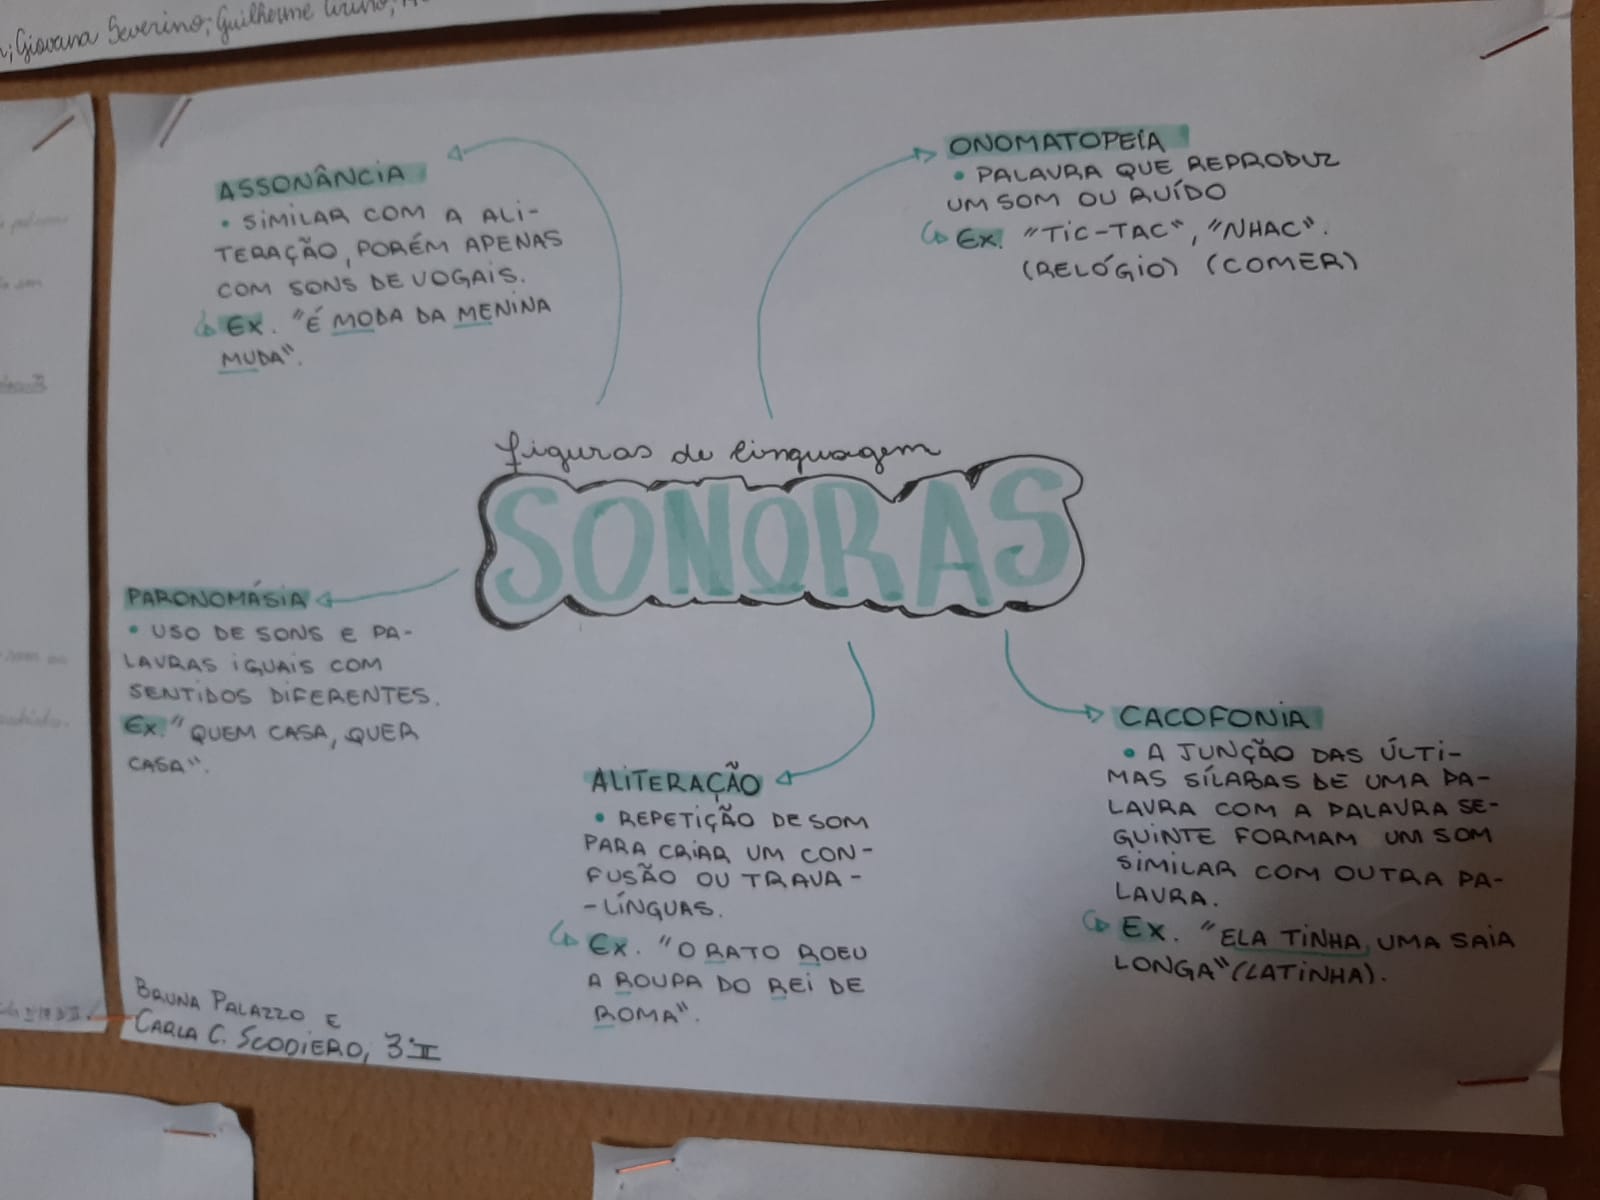 Giovana Severino; Guilherme
ASSONÂNCIA
• SIMILAR COM A ALI-
TERAÇÃO, PORÉM APENAS
COM SONS DE VOGAIS.
Ex. "É MODA DA MENINA
MUDA".
ONOMATOPEIA
• PALAVRA QUE REPRODUZ
UM SOM OU RUÍDO
Ex. "TIC-TAC", "NHAC".
(RELÓGIO) (COMER)
figuras de linguagem
SONORAS
PARONOMÁSIA
• USO DE SONS E PA-
LAVRAS IGUAIS COM
SENTIDOS DIFERENTES.
Ex. "QUEM CASA, QUER
CASA".
ALITERAÇÃO
• REPETIÇÃO DE SOM
PARA CRIAR UM CON-
FUSÃO OU TRAVA-
-LÍNGUAS.
Ex. "O RATO ROEU
A ROUPA DO REI DE
ROMA".
CACOFONIA
• A JUNÇÃO DAS ÚLTI-
MAS SÍLABAS DE UMA PA-
LAVRA COM A PALAVRA SE-
GUINTE FORMAM UM SOM
SIMILAR COM OUTRA PA-
LAVRA.
Ex. "ELA TINHA UMA SAIA
LONGA" (LATINHA).
BRUNA PALAZZO E
CARLA C. SCODIERO, 3ºII